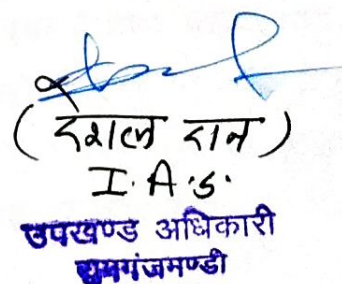 (देशल दान)
I.A.S.
उपखण्ड अधिकारी
रामगंजमण्डी